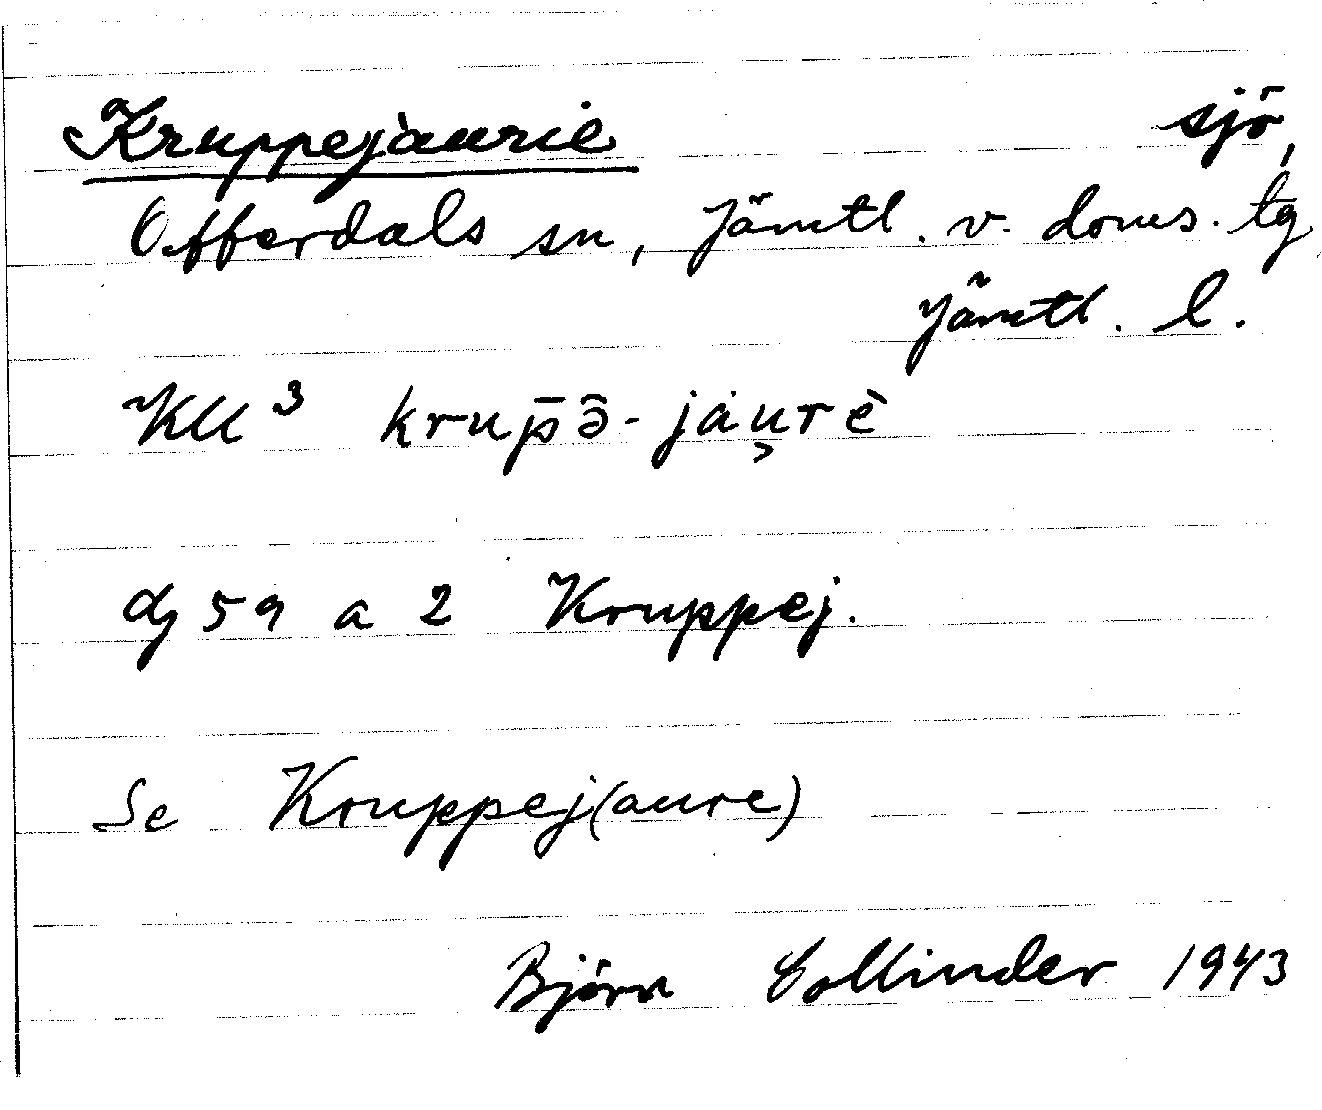 Kruppejaurie sjö,
Offerdals sn, Jämtl. v. doms. tg
Jämtl. l.
KU³ krup̄ə̑-jáu̯rè
dj 59 a 2 Kruppej.
Se Kruppej(aure)
Björn Collinder 1943